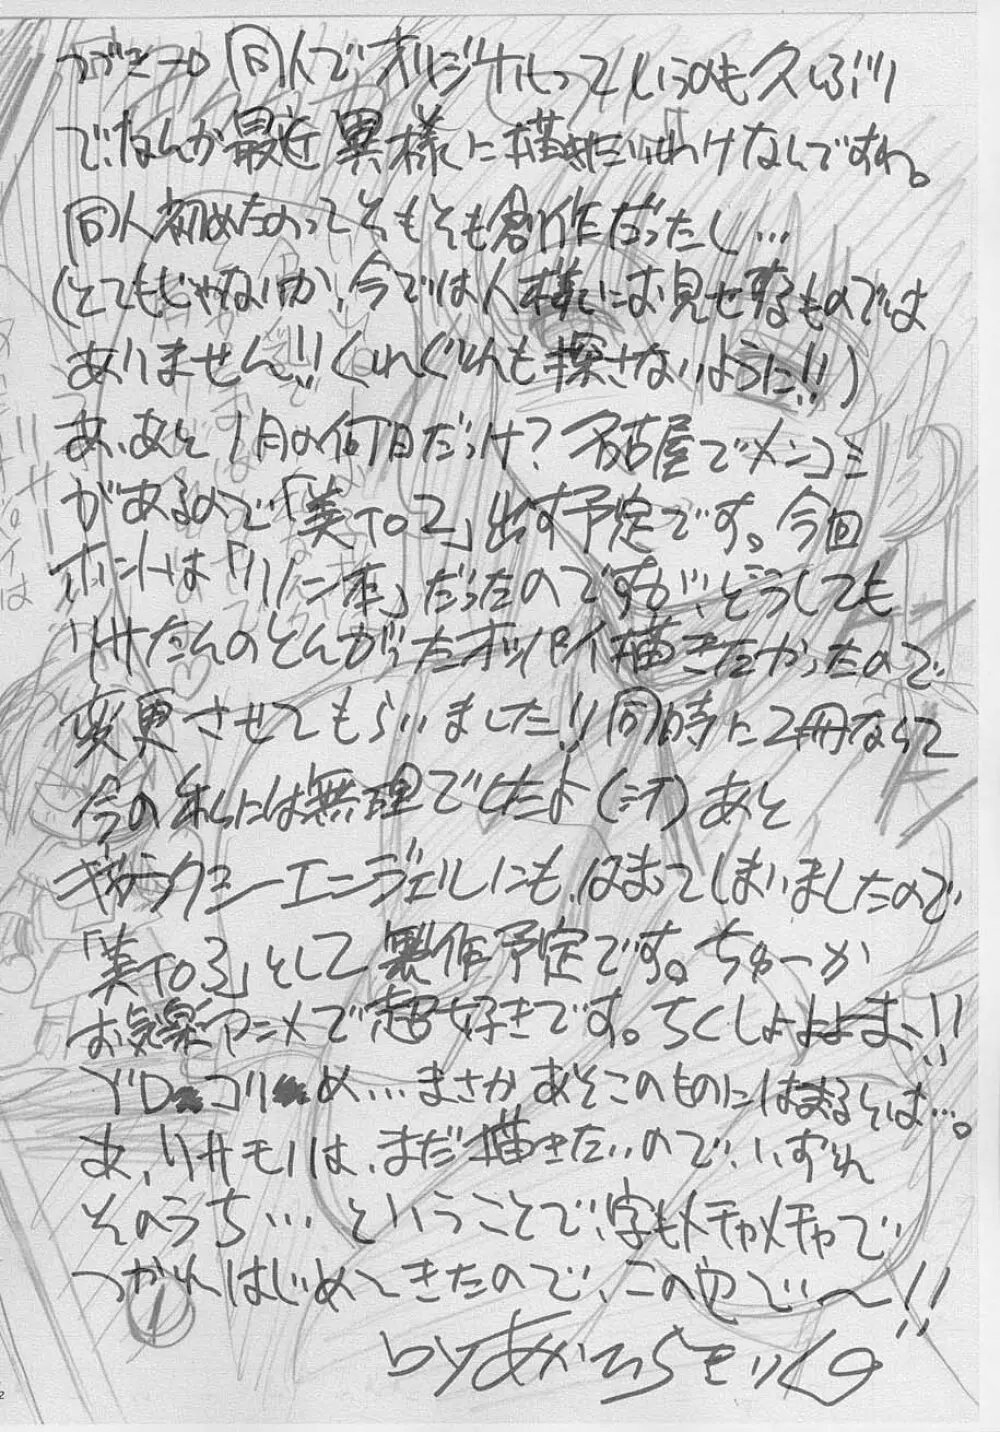 つづき→ 同人でオリジナルっていうのも久しぶり
でなんか最近異様に描きたいわけなんですわ。
同人初めたのってそもそも創作だったし…
(とてもじゃないが、今では人様にお見せするものでは
ありません!!くれぐれも探さないように!!)
あ、あと1月の何日だっけ?名古屋でメンコミ
があるので「美TO2」出す予定です。今回
ホントは「リノン本」だったのですが、どうしても
リサたんのとんがったオッパイ描きたかったので
変更させてもらいました!!同時に2冊なんて
今の私には無理でしたよ(汗)あと
ギャラクシーエンジェルにも、はまってしまいましたので
「美TO3」として製作予定です。ちゅーか
お気楽アニメで超好きです。ちくしょ
ブロッコリーめ…まさかあそこのものにはまるとは…。
あ、リサモノは、まだ描きたいので、いずれ
そのうち…ということで、字もメチャメチャで
つかれはじめてきたので、このへんで〜!!
by
2